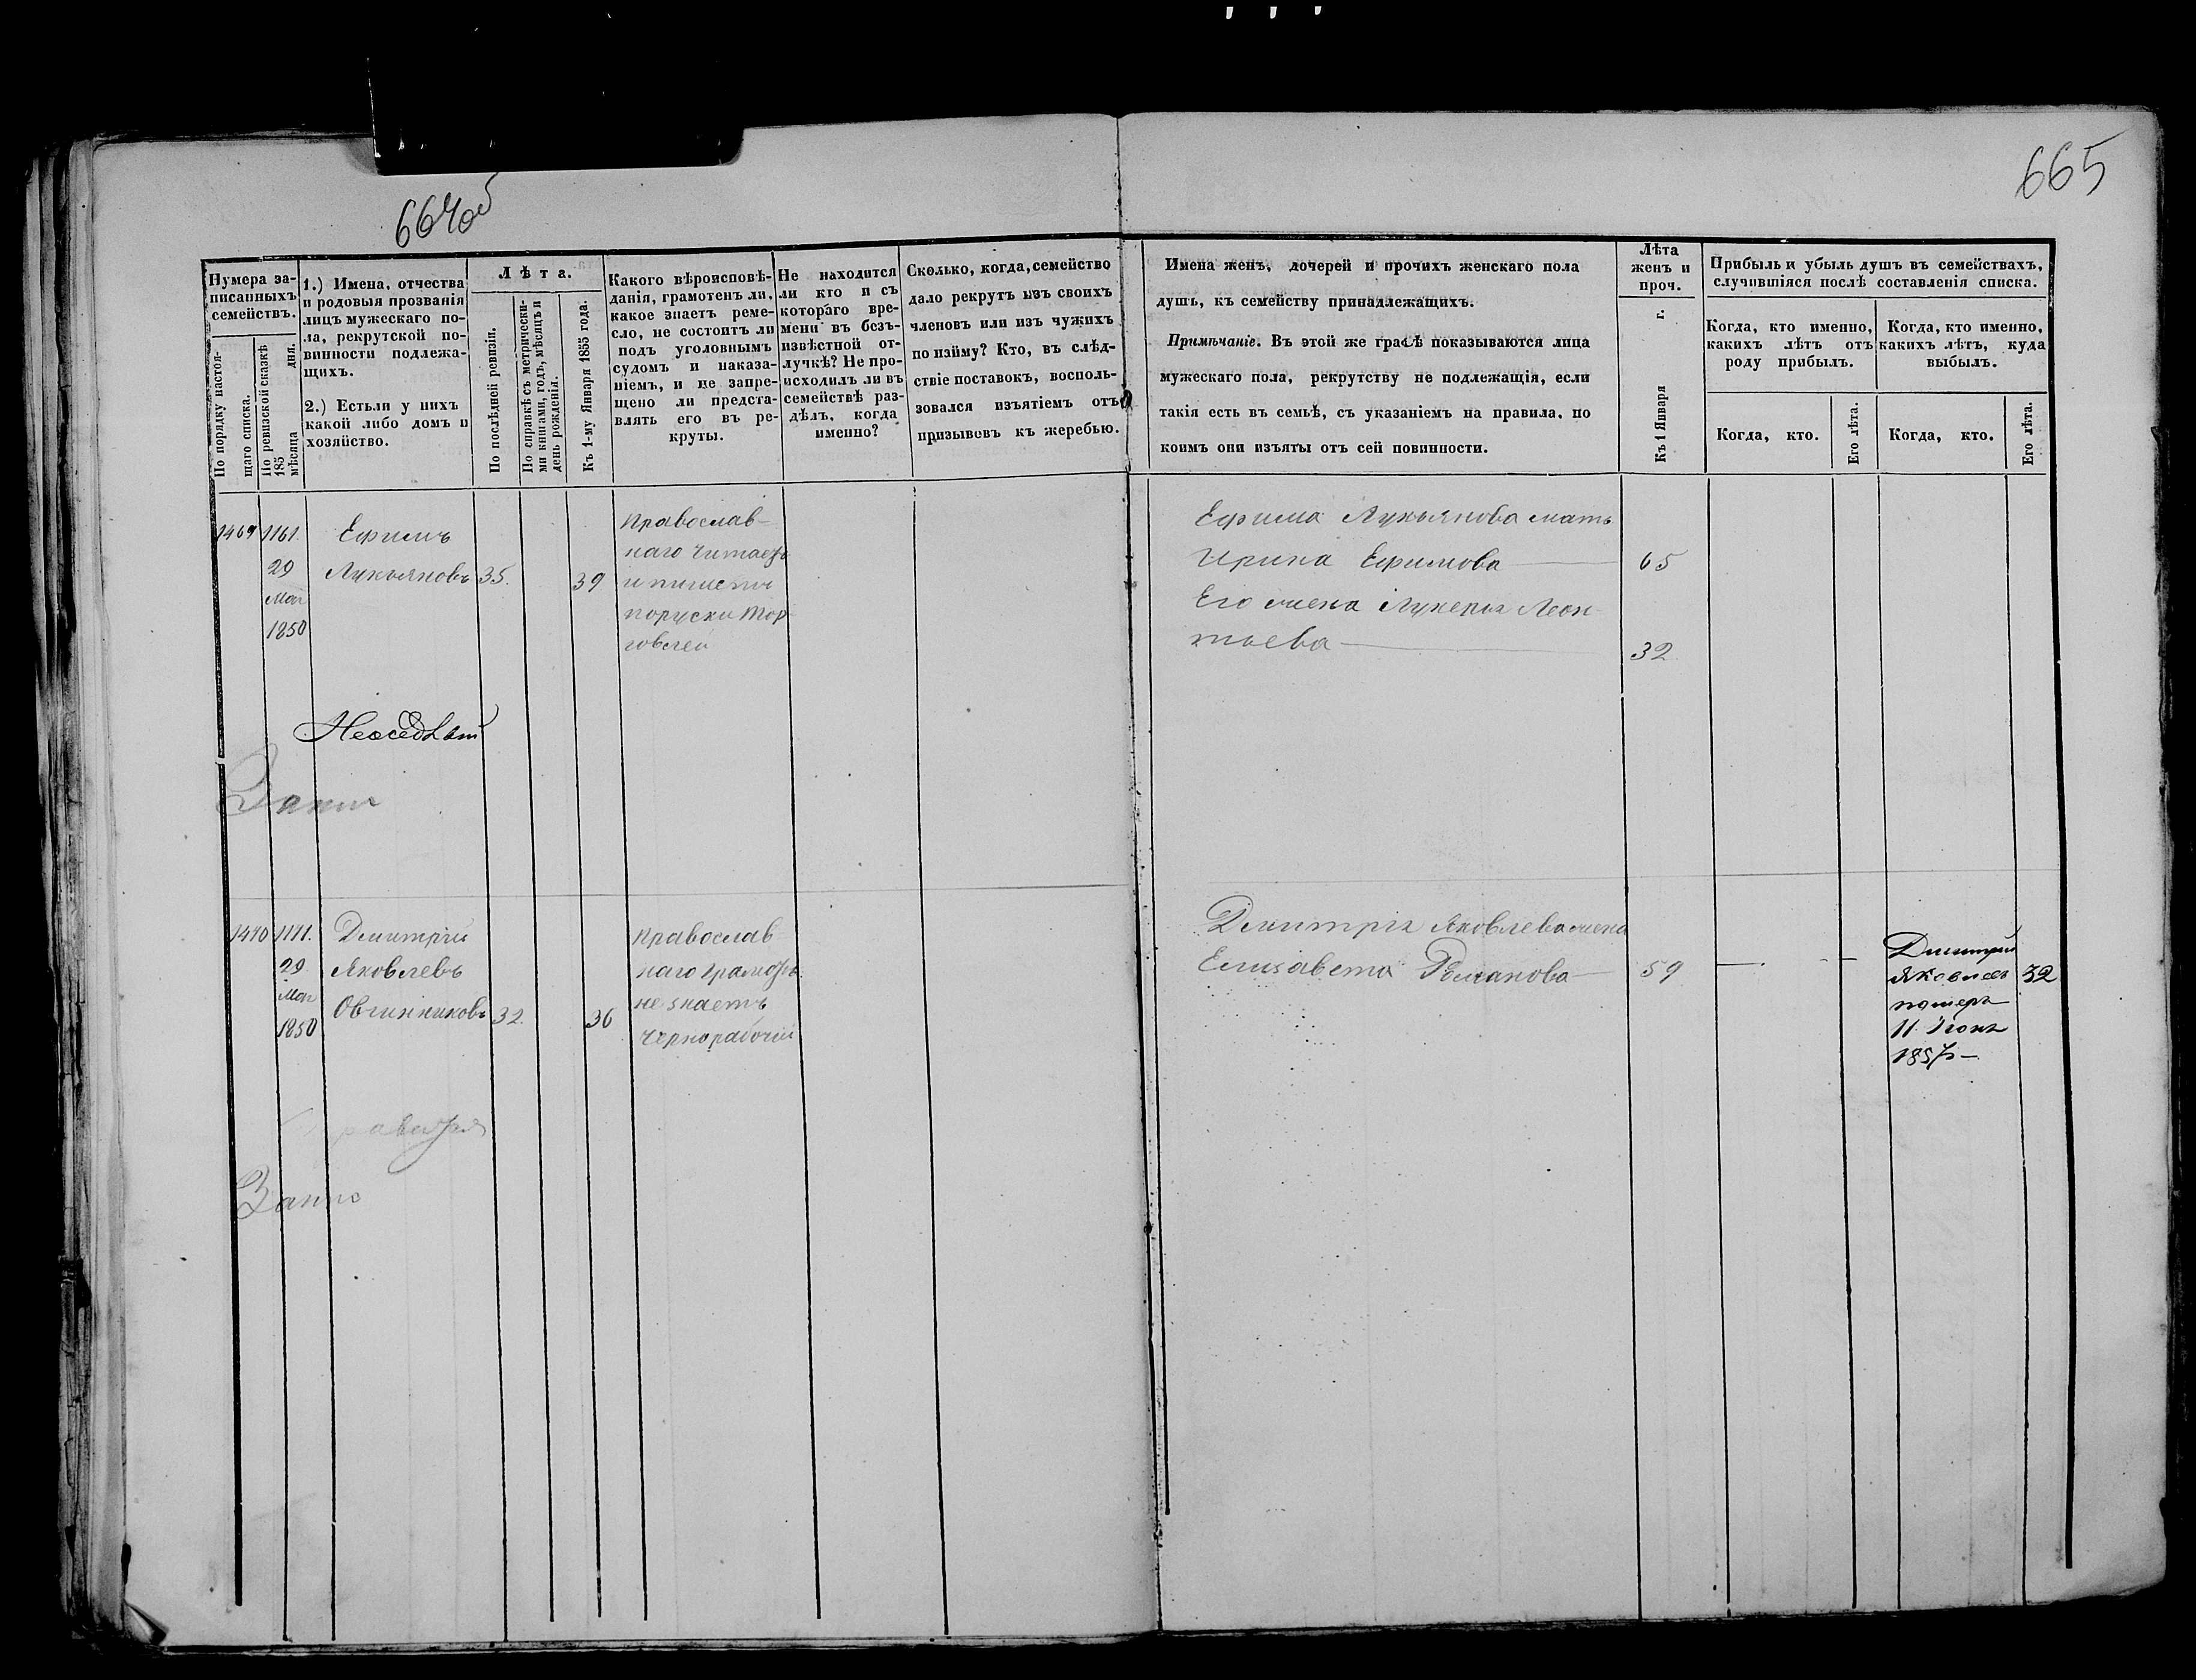 664об
665
Нумера за-
писанныхъ
семействъ.
По порядку настоя-
щаго списка.
По ревизской сказкѣ
185 дня.
мѣсяца
1.) Имена, отчества
и родовыя прозванія
лицъ мужескаго по-
ла, рекрутской по-
винности подлежа-
щихъ.
2.) Естьли у нихъ
какой либо домъ и
хозяйство.
Лѣта.
По послѣдней ревизіи.
По справкѣ съ метрически-
ми книгами, годъ, мѣсяцъ и
день рожденія.
Къ 1-му Января 1855 года.
Какого вѣроисповѣ-
данія, грамотенъ ли,
какое знаетъ реме-
сло, не состоитъ ли
подъ уголовнымъ
судомъ и наказа-
ніемъ, и не запре-
щено ли предста-
влять его въ ре-
круты.
Не находится
ли кто и съ
котораго вре-
мени въ безъ-
извѣстной от-
лучкѣ? Не про-
исходилъ ли въ
семействѣ раз-
дѣлъ, когда
именно?
Сколько, когда, семейство
дало рекрутъ изъ своихъ
членовъ или изъ чужихъ
по найму? Кто, въ слѣд-
ствіе поставокъ, восполь-
зовался изъятіемъ отъ
призывовъ къ жеребью.
Имена женъ, дочерей и прочихъ женскаго пола
душъ, къ семейству принадлежащихъ.
Примѣчаніе. Въ этой же графѣ показываются лица
мужескаго пола, рекрутству не подлежащія, если
такія есть въ семьѣ, съ указаніемъ на правила, по
коимъ они изъяты отъ сей повинности.
Лѣта
женъ и
проч.
Къ 1 Января г.
Прибыль и убыль душъ въ семействахъ,
случившіяся послѣ составленія списка.
Когда, кто именно,
какихъ лѣтъ отъ
роду прибылъ.
Когда, кто именно,
какихъ лѣтъ, куда
выбылъ.
Когда, кто.
Его лѣта.
Когда, кто.
Его лѣта.
1469
1161.
29
Мая
1850
Ефимъ
Лукьяновъ
35.
39
Православ-
наго читаетъ
и пишетъ
поруски тор-
говлей
Ефима Лукьянова мать
Ирина Ефимова
65
Его жена Лукерья Леон-
тьева
32
1470
29
Мая
1850
Дмитрій
Яковлевъ
Овчинниковъ
32.
36
Православ
наго грамотѣ
не знаетъ
чернорабочій
Дмитрія Яковлева жена
Елизавета Романова
59
Дмитрій
Яковлевъ
померъ
11. Іюня
32